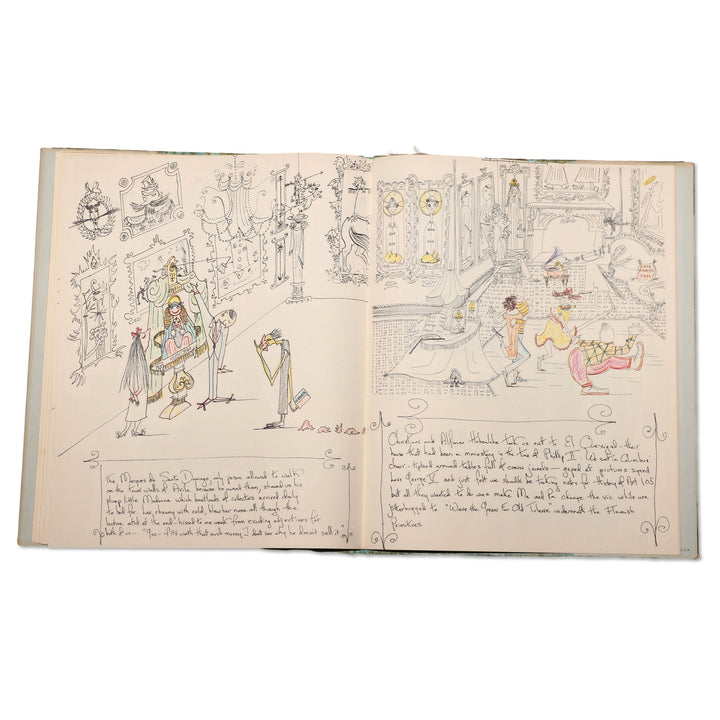 The Marques de Santo Domingo, only person allowed to walk
on the town walls of Avila because he owned them, showed us his
plump little Madonna which boatloads of collectors arrived daily
to bid for. Lee, chewing with cold, blew her nose all through the
lecture and at the end hissed to me weak from exciting adjectives for
both of us - "Gee - if it's worth that much money I don't see why he doesn't sell it"
Christina and Alfonso Hohenlohe took us out to El Quexigal - their
house that had been a monastery in the time of Philip II. We sat in Columbus'
chair - tiptoed around tables full of crown jewels - gazed at pictures signed
love George V and just felt we should be taking notes for History of Art 105
but all they wanted to do was make Ma and Pa change the vic while we
jitterbugged to "Where the Green Ivy Old Those" underneath the Flemish
Primitives